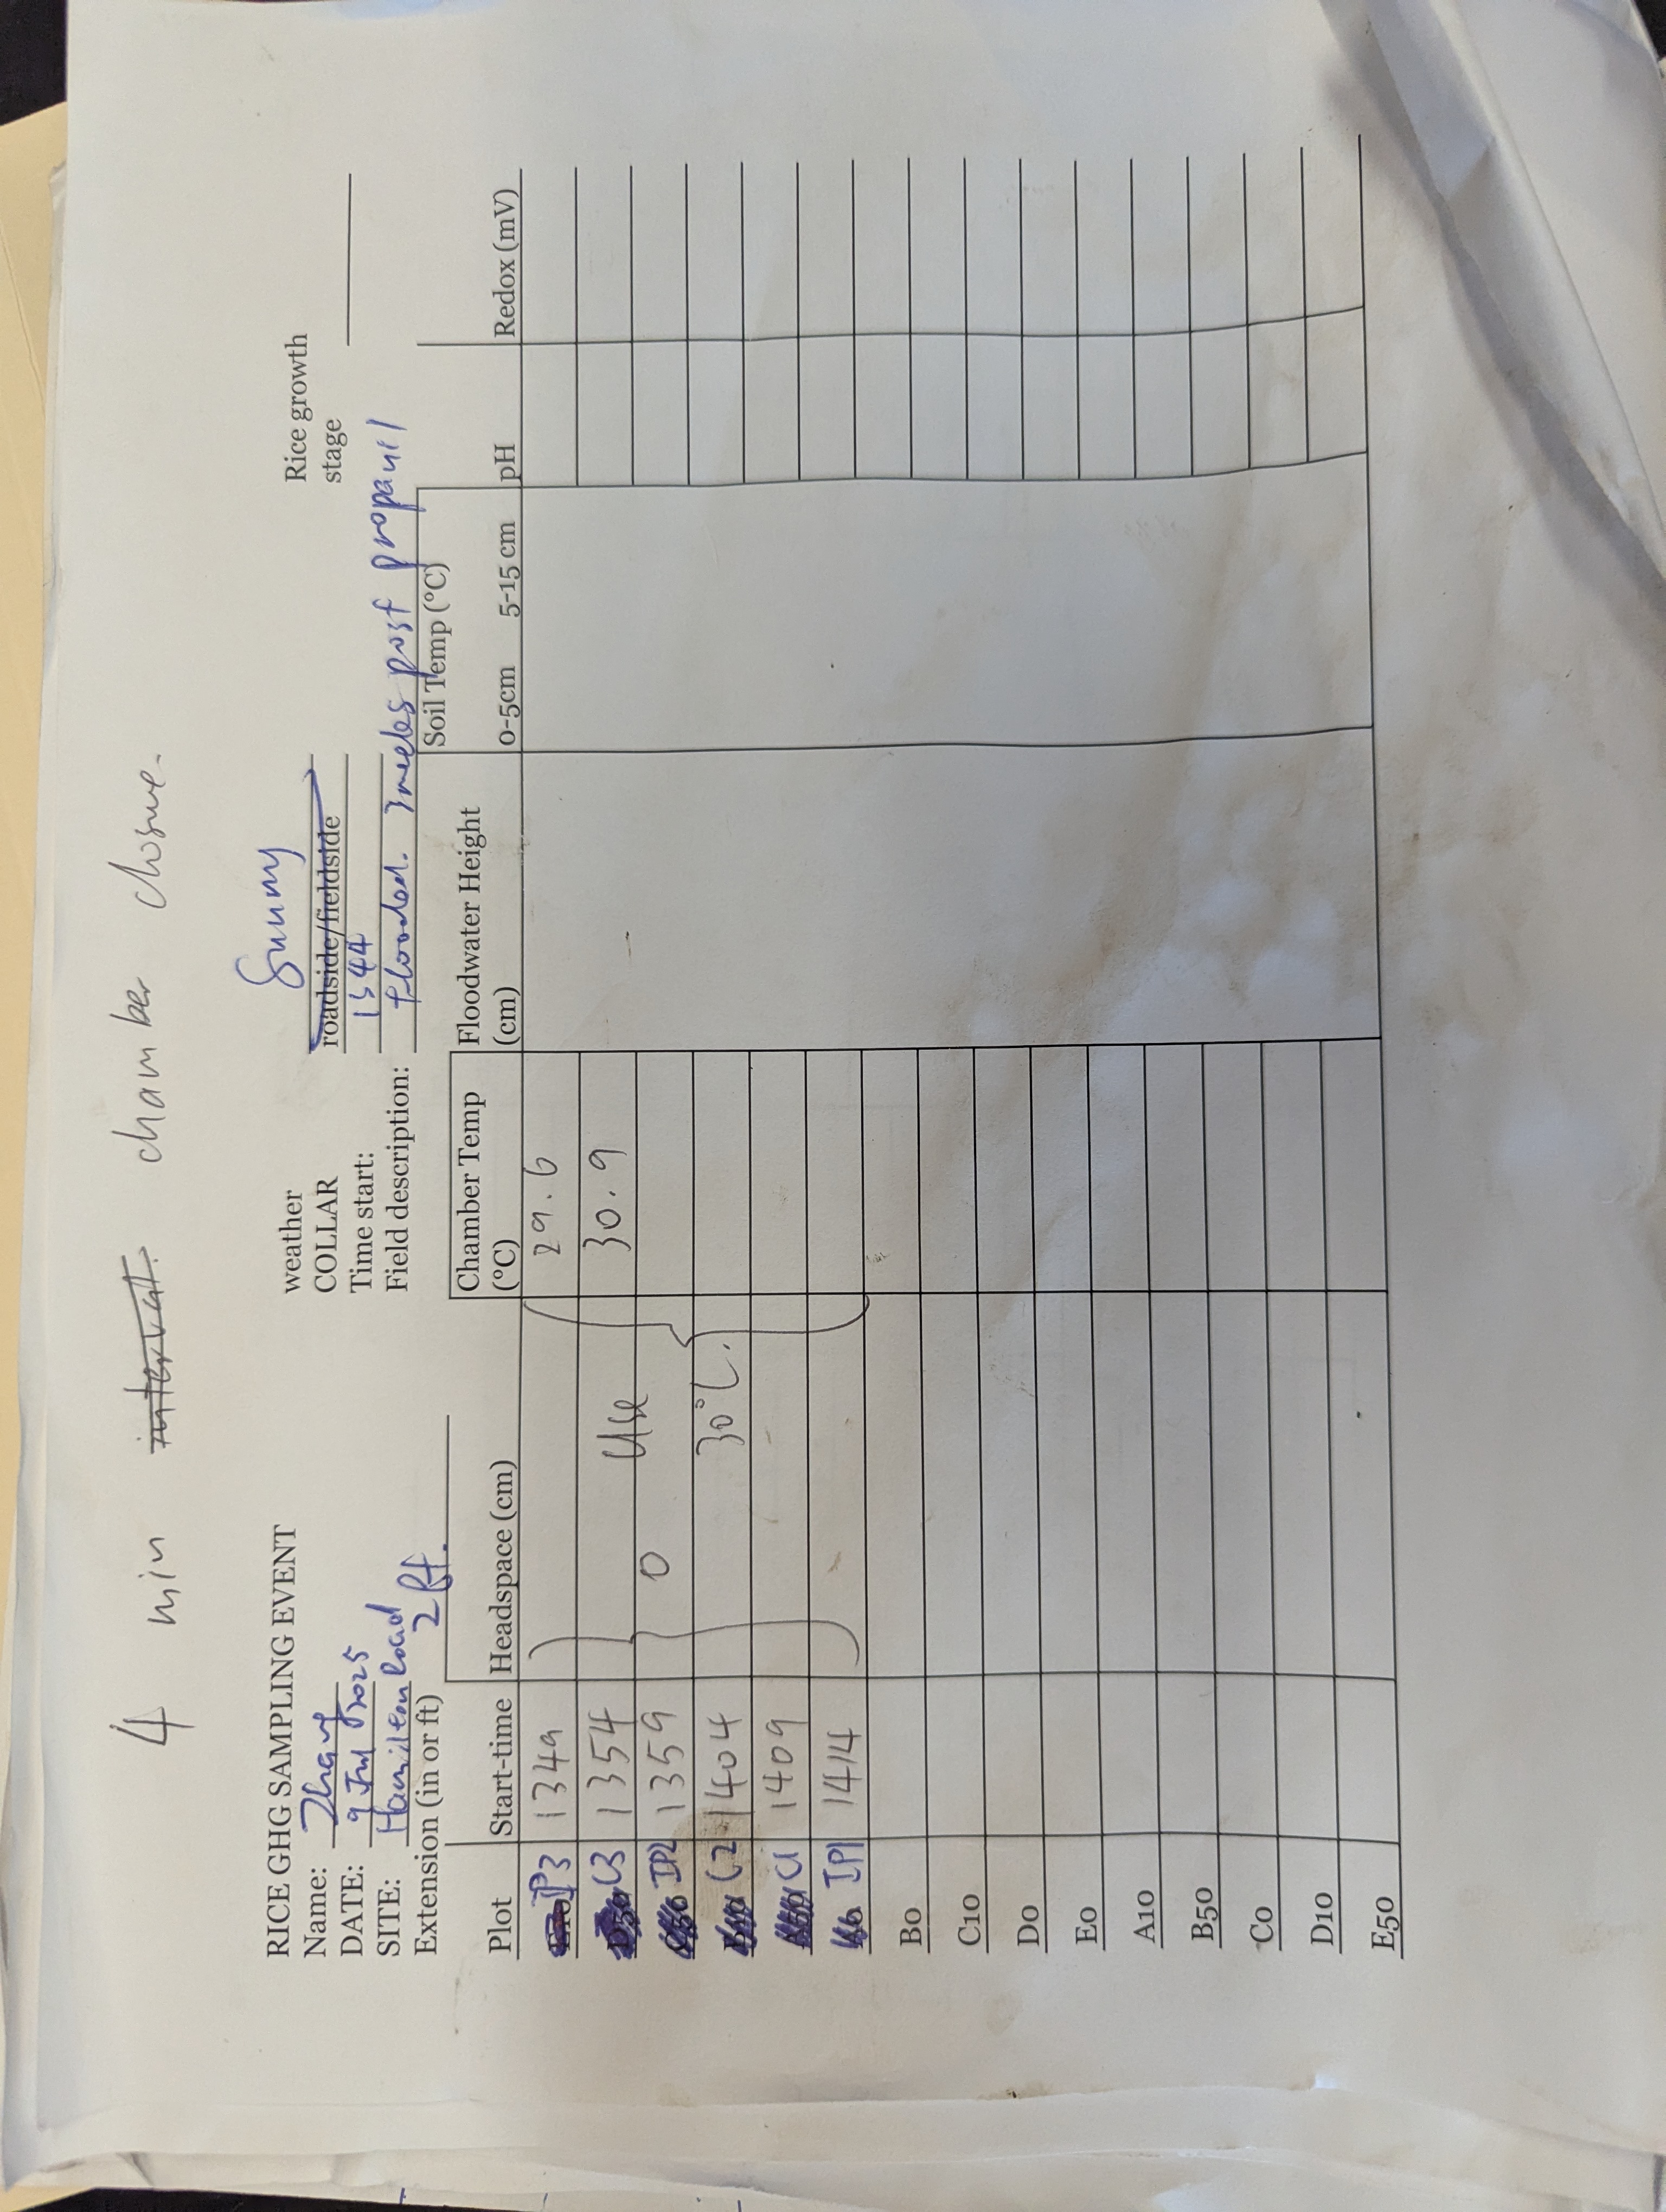 4 min interval. chamber closure.
RICE GHG SAMPLING EVENT
Name: Zhang
DATE: 9 Jul 2025
SITE: Hamilton Road
Extension (in or ft) 2 ft.
weather Sunny
COLLAR roadside/fieldside
Time start: 1344
Field description: flooded. 3 weeks post propanil
Rice growth stage
Plot Start-time Headspace (cm) Chamber Temp (°C) Floodwater Height (cm) Soil Temp (°C) 0-5cm 5-15 cm pH Redox (mV)
IP3 1349 29.6
C3 1354 Use 30.9
IP2 1359 0
C2 1404 30°C.
C1 1409
IP1 1414
B0
C10
D0
E0
A10
B50
C0
D10
E50